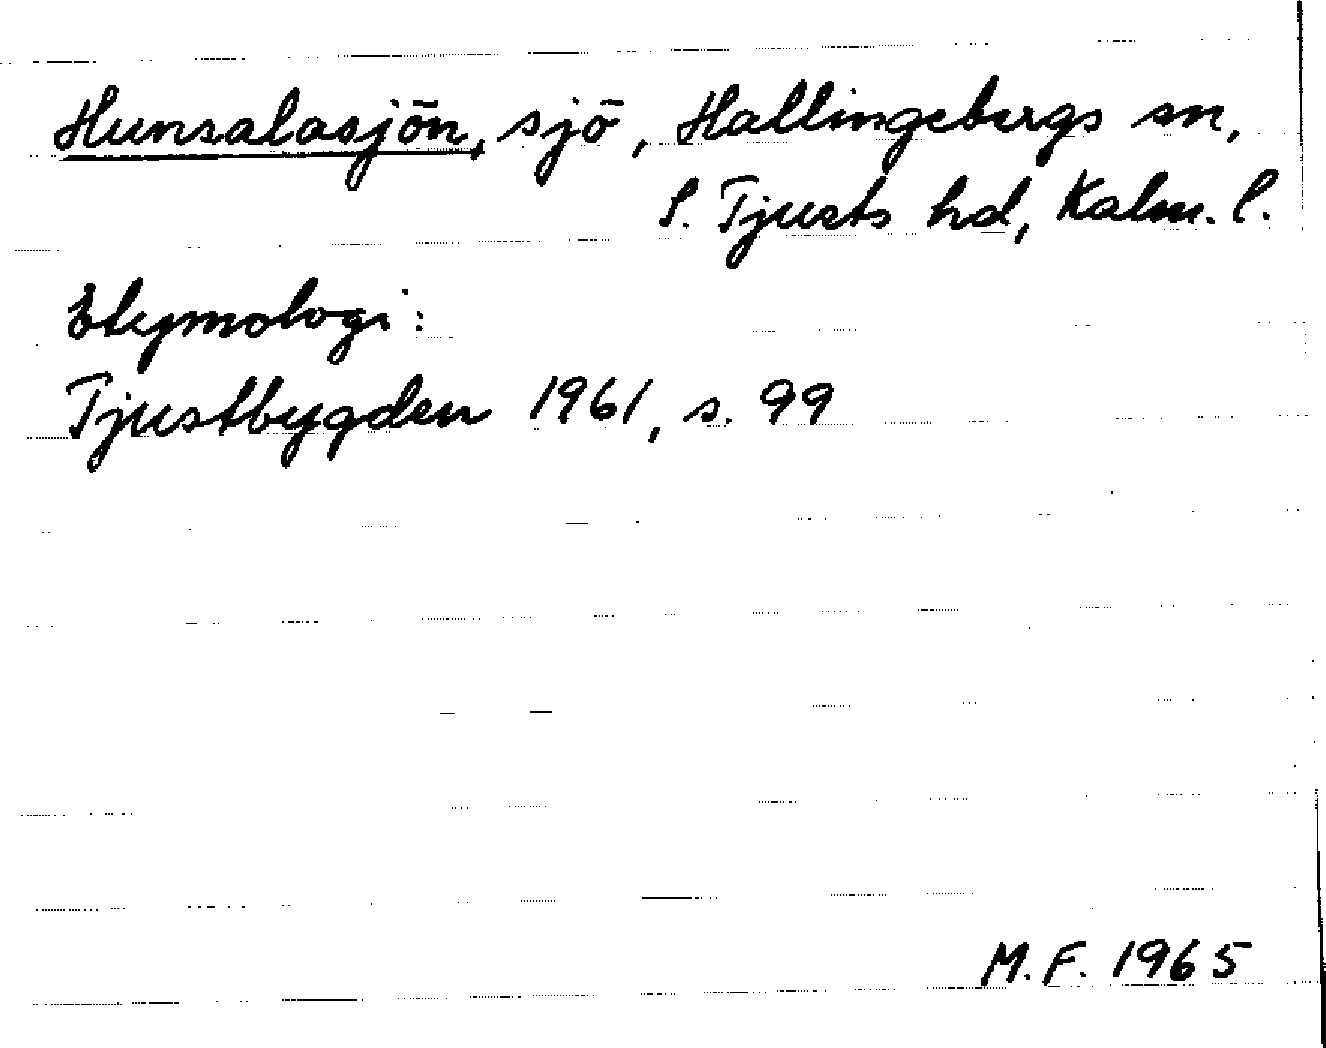 Hunsalasjön, sjö, Hallingebergs sn,
S. Tjusts hd, Kalm. l.
Etymologi:
Tjustbygden 1961, s. 99
M.F. 1965